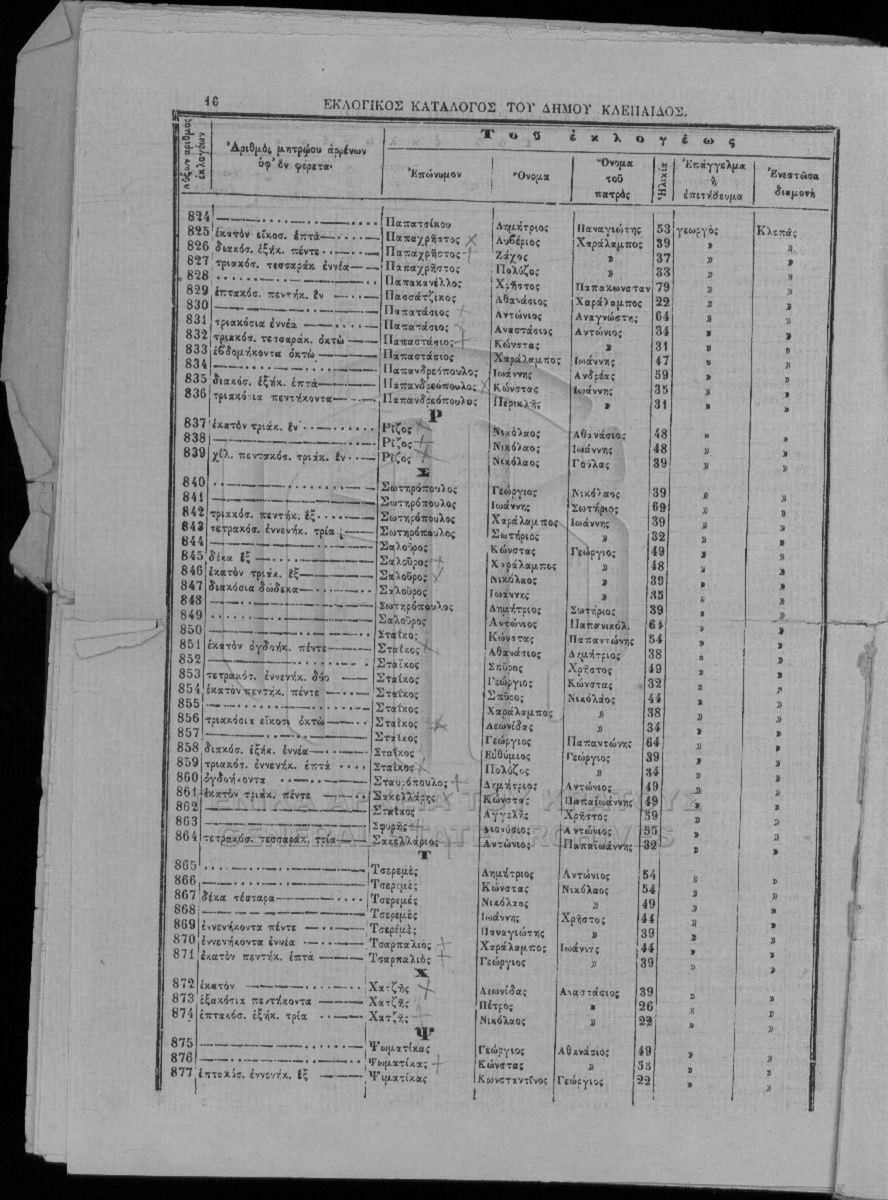 16
ΕΚΛΟΓΙΚΟΣ ΚΑΤΑΛΟΓΟΣ ΤΟΥ ΔΗΜΟΥ ΚΛΕΠΑΙΔΟΣ.
Αὔξων ἀριθμὸς ἐκλογέων
Ἀριθμὸς μητρῴου ἀρρένων ὑφ' ὃν φέρεται
Τοῦ ἐκλογέως
Ἐπώνυμον
Ὄνομα
Ὄνομα τοῦ πατρὸς
Ἡλικία
Ἐπάγγελμα ἢ ἐπιτήδευμα
Ἐνεστῶσα διαμονὴ
824 Παπατσίκου Δημήτριος Παναγιώτης 53 γεωργὸς Κλεπᾶς
825 ἑκατὸν εἴκοσ. ἑπτὰ Παπαχρῆστος Λιβέριος Χαράλαμπος 39 » »
826 διακόσ. ἑξήκ. πέντε Παπαχρῆστος Ζάχος » 37 » »
827 τριακόσ. τεσσαράκ. ἐννέα Παπαχρῆστος Πολύζος » 33 » »
828 Παπακανέλλος Χρῆστος Παπακωνσταν 79 » »
829 ἑπτακόσ. πεντήκ. ἓν Πασσάτζικος Ἀθανάσιος Χαράλαμπος 22 » »
830 Παπατάσιος Ἀντώνιος Ἀναγνώστης 64 » »
831 τριακόσια ἐννέα Παπατάσιος Ἀναστάσιος Ἀντώνιος 34 » »
832 τριακόσ. τεσσαράκ. ὀκτὼ Παπαστάσιος Κώνστας » 31 » »
833 ἑβδομήκοντα ὀκτὼ Παπαστάσιος Χαράλαμπος Ἰωάννης 47 » »
834 Παπανδρεόπουλος Ἰωάννης Ἀνδρέας 59 » »
835 διακόσ. ἑξήκ. ἑπτὰ Παπανδρεόπουλος Κώνστας Ἰωάννης 35 » »
836 τριακόσια πεντήκοντα Παπανδρεόπουλος Περικλῆς » 31 » »
Ρ
837 ἑκατὸν τριάκ. ἓν Ρίζος Νικόλαος Ἀθανάσιος 48 » »
838 Ρίζος Νικόλαος Ἰωάννης 48 » »
839 χίλ. πεντακόσ. τριάκ. ἓν Ρίζος Νικόλαος Γούλας 39 » »
Σ
840 Σωτηρόπουλος Γεώργιος Νικόλαος 39 » »
841 Σωτηρόπουλος Ἰωάννης Σωτήριος 69 » »
842 τριακόσ. πεντήκ. ἓξ Σωτηρόπουλος Χαράλαμπος Ἰωάννης 39 » »
843 τετρακόσ. ἐννενήκ. τρία Σωτηρόπουλος Σωτήριος » 32 » »
844 Σαλοῦρος Κώνστας Γεώργιος 49 » »
845 δέκα ἓξ Σαλοῦρος Χαράλαμπος » 48 » »
846 ἑκατὸν τριάκ. ἓξ Σαλοῦρος Νικόλαος » 39 » »
847 διακόσια δώδεκα Σαλοῦρος Ἰωάννης » 35 » »
848 Σωτηρόπουλος Δημήτριος Σωτήριος 39 » »
849 Σαλοῦρος Ἀντώνιος Παπανικόλ. 64 » »
850 Σταΐκος Κώνστας Παπαντώνης 54 » »
851 ἑκατὸν ὀγδοήκ. πέντε Σταΐκος Ἀθανάσιος Δημήτριος 38 » »
852 Σταΐκος Σπῦρος Χρῆστος 49 » »
853 τετρακόσ. ἐννενήκ. δύο Σταΐκος Γεώργιος Κώνστας 32 » »
854 ἑκατὸν πεντήκ. πέντε Σταΐκος Σπῦρος Νικόλαος 44 » »
855 Σταΐκος Χαράλαμπος » 38 » »
856 τριακόσια εἴκοσι ὀκτὼ Σταΐκος Λεωνίδας » 34 » »
857 Σταΐκος Γεώργιος Παπαντώνης 64 » »
858 διακόσ. ἑξήκ. ἐννέα Σταΐκος Εὐθύμιος Γεώργιος 39 » »
859 τριακόσ. ἐννενήκ. ἑπτὰ Σταΐκος Πολύζος » 34 » »
860 ὀγδοήκοντα Σταυρόπουλος Δημήτριος Ἀντώνιος 49 » »
861 ἑκατὸν τριάκ. πέντε Σακελλάρης Κώνστας Παπαϊωάννης 49 » »
862 Σταΐκος Ἀγγελῆς Χρῆστος 59 » »
863 Σφυρῆς Διονύσιος Ἀντώνιος 55 » »
864 τετρακόσ. τεσσαράκ. τρία Σακελλάριος Ἀντώνιος Παπαϊωάννης 32 » »
Τ
865 Τσερεμὲς Δημήτριος Ἀντώνιος 54 » »
866 Τσερεμὲς Κώνστας Νικόλαος 54 » »
867 δέκα τέσσαρα Τσερεμὲς Νικόλαος » 49 » »
868 Τσερεμὲς Ἰωάννης Χρῆστος 44 » »
869 ἐννενήκοντα πέντε Τσερεμὲς Παναγιώτης » 39 » »
870 ἐννενήκοντα ἐννέα Τσαρπαλιὸς Χαράλαμπος Ἰωάννης 44 » »
871 ἑκατὸν πεντήκ. ἑπτὰ Τσαρπαλιὸς Γεώργιος » 39 » »
Χ
872 ἑκατὸν Χατζῆς Λεωνίδας Ἀναστάσιος 39 » »
873 ἑξακόσια πεντήκοντα Χατζῆς Πέτρος » 26 » »
874 ἑπτακόσ. ἑξήκ. τρία Χατζῆς Νικόλαος » 22 » »
Ψ
875 Ψωματίκας Γεώργιος Ἀθανάσιος 49 » »
876 Ψωματίκας Κώνστας » 53 » »
877 ἑπτακόσ. ἐννενήκ. ἓξ Ψωματίκας Κωνσταντῖνος Γεώργιος 22 » »
ΓΕΝΙΚΑ ΑΡΧΕΙΑ ΤΟΥ ΚΡΑΤΟΥΣ
GENERAL STATE ARCHIVES